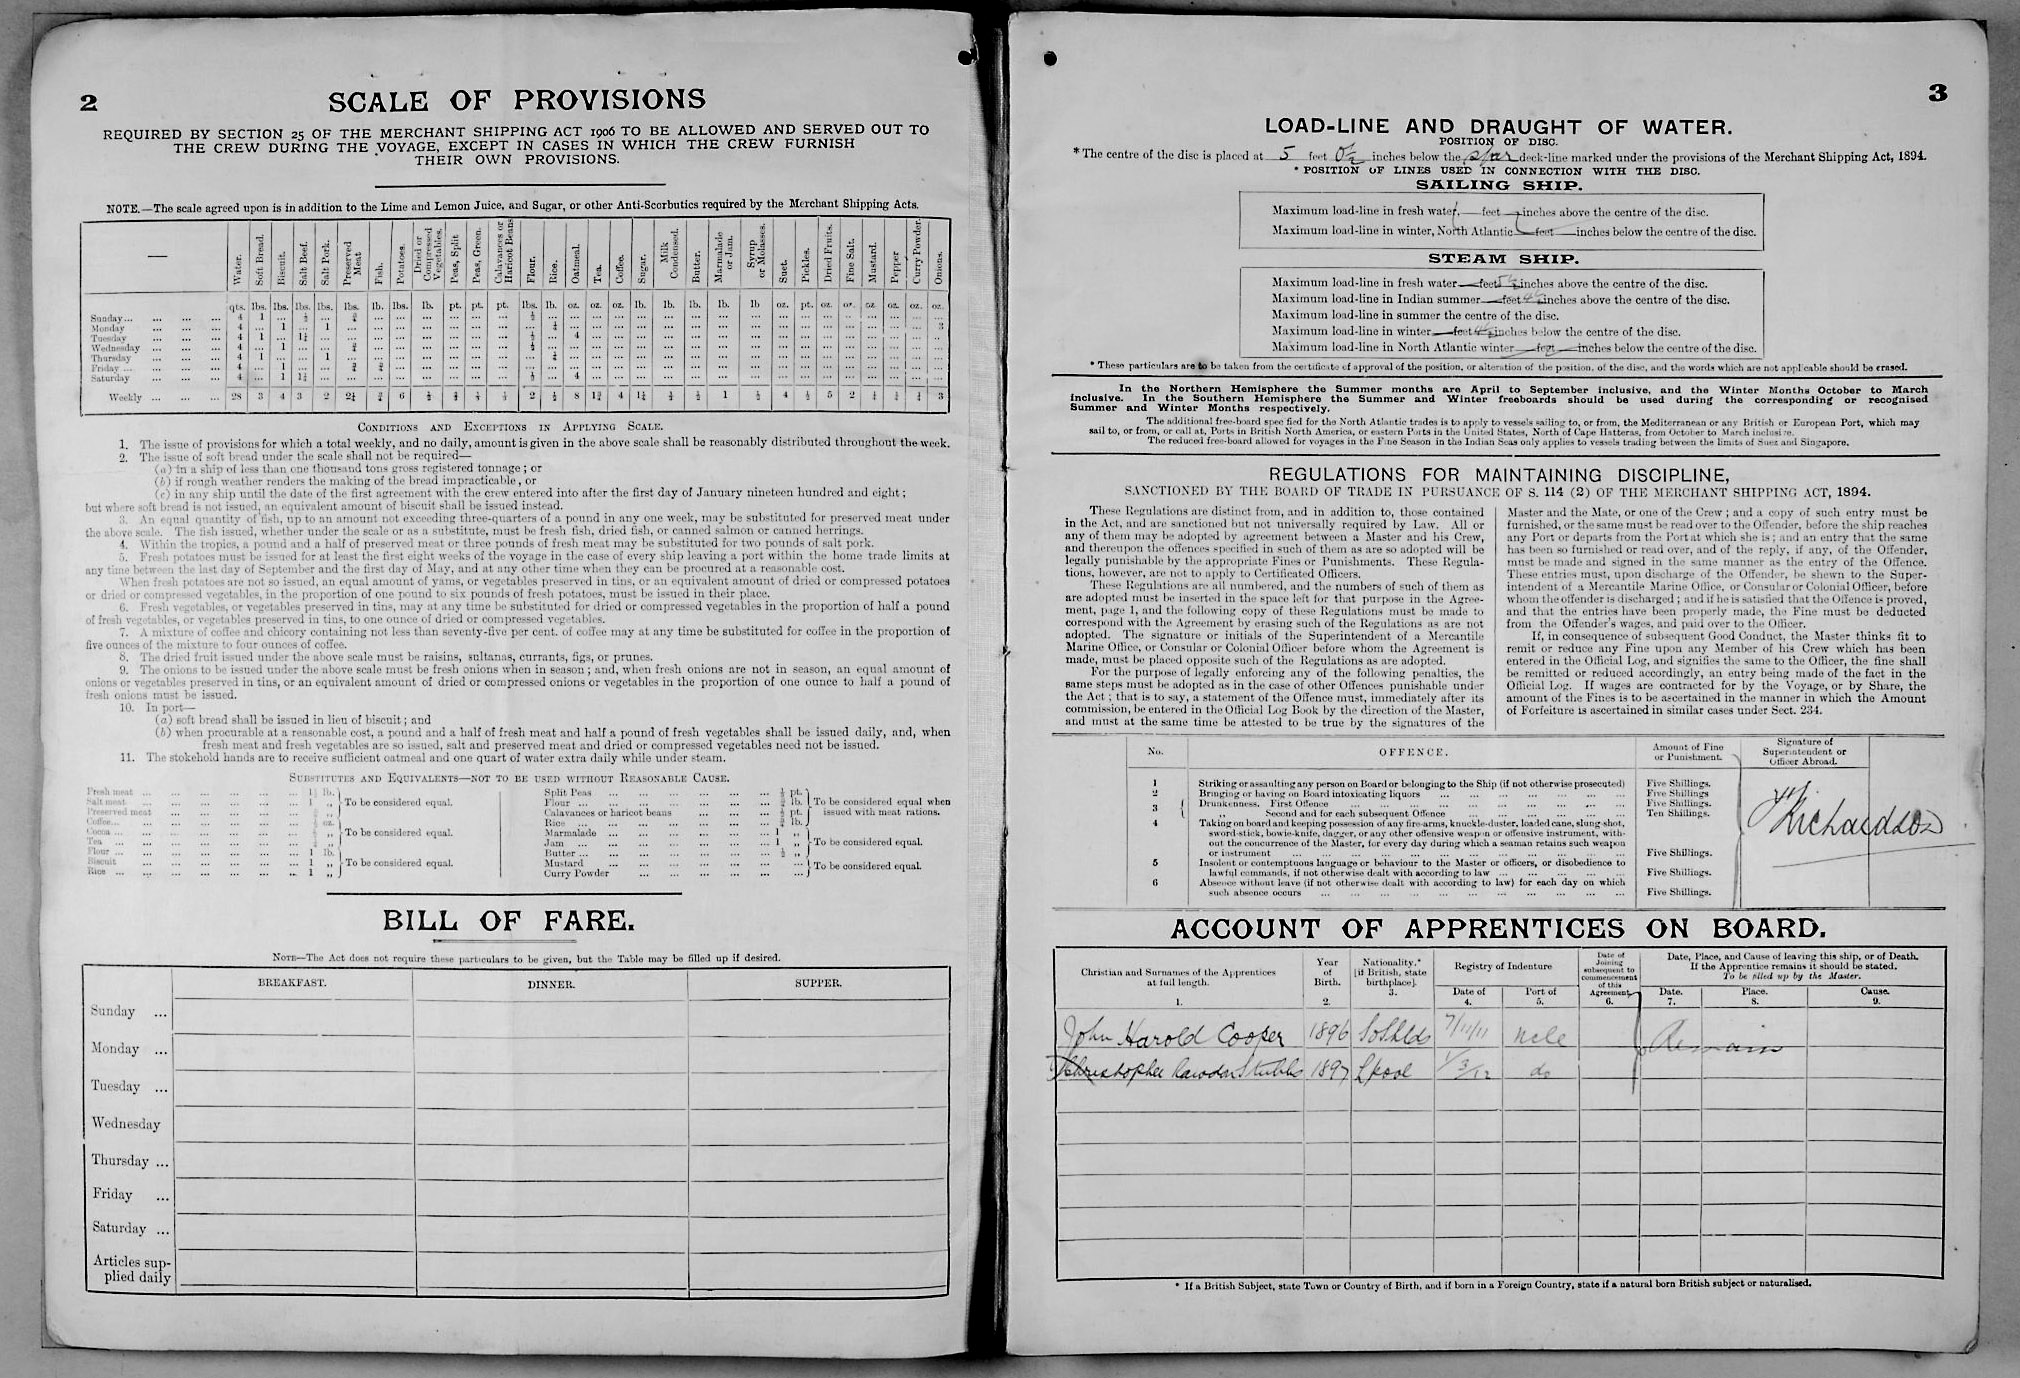 2
SCALE OF PROVISIONS
REQUIRED BY SECTION 25 OF THE MERCHANT SHIPPING ACT 1906 TO BE ALLOWED AND SERVED OUT TO
THE CREW DURING THE VOYAGE, EXCEPT IN CASES IN WHICH THE CREW FURNISH
THEIR OWN PROVISIONS.
NOTE.—The scale agreed upon is in addition to the Lime and Lemon Juice, and Sugar, or other Anti-Scorbutics required by the Merchant Shipping Acts.
— Water. Soft Bread. Biscuit. Salt Beef. Salt Pork. Preserved Meat Fish. Potatoes. Dried or Compressed Vegetables. Peas, Split Peas, Green. Calavances or Haricot Beans Flour. Rice. Oatmeal. Tea. Coffee. Sugar. Milk Condensed. Butter. Marmalade or Jam. Syrup or Molasses. Suet. Pickles. Dried Fruits. Fine Salt. Mustard. Pepper Curry Powder. Onions.
qts. lbs. lbs. lbs. lbs. lbs. lb. lbs. lb. pt. pt. pt. lbs. lb. oz. oz. oz. lb. lb. lb. lb. lb oz. pt. oz. oz. oz. oz. oz. oz.
Sunday... ... ... ... 4 1 ... ½ ... ¾ ... ... ... ... ... ... ½
Monday ... ... ... 4 ... 1 ... 1 ... ... ... ... ... ... ... ... ¼ ... 3
Tuesday ... ... ... 4 1 ... 1¼ ... ... ... ... ... ... ... ... ½ ... 4
Wednesday ... ... ... 4 ... 1 ... ... ¾ ... ... ... ... ... ... ½
Thursday ... ... ... 4 1 ... ... 1 ... ... ... ... ... ... ... ... ¼
Friday ... ... ... ... 4 ... 1 ... ... ¾ ¾
Saturday ... ... ... 4 ... 1 1¼ ... ... ... ... ... ... ... ... ½ ... 4
Weekly ... ... ... 28 3 4 3 2 2¼ ¾ 6 ½ ⅔ ⅓ ⅓ 2 ½ 8 1¾ 4 1¼ ⅓ ½ 1 ½ 4 ½ 5 2 ¼ ¼ ¼ 3
CONDITIONS AND EXCEPTIONS IN APPLYING SCALE.
1. The issue of provisions for which a total weekly, and no daily, amount is given in the above scale shall be reasonably distributed throughout the week.
2. The issue of soft bread under the scale shall not be required—
(a) in a ship of less than one thousand tons gross registered tonnage; or
(b) if rough weather renders the making of the bread impracticable, or
(c) in any ship until the date of the first agreement with the crew entered into after the first day of January nineteen hundred and eight;
but where soft bread is not issued, an equivalent amount of biscuit shall be issued instead.
3. An equal quantity of fish, up to an amount not exceeding three-quarters of a pound in any one week, may be substituted for preserved meat under
the above scale. The fish issued, whether under the scale or as a substitute, must be fresh fish, dried fish, or canned salmon or canned herrings.
4. Within the tropics, a pound and a half of preserved meat or three pounds of fresh meat may be substituted for two pounds of salt pork.
5. Fresh potatoes must be issued for at least the first eight weeks of the voyage in the case of every ship leaving a port within the home trade limits at
any time between the last day of September and the first day of May, and at any other time when they can be procured at a reasonable cost.
When fresh potatoes are not so issued, an equal amount of yams, or vegetables preserved in tins, or an equivalent amount of dried or compressed potatoes
or dried or compressed vegetables, in the proportion of one pound to six pounds of fresh potatoes, must be issued in their place.
6. Fresh vegetables, or vegetables preserved in tins, may at any time be substituted for dried or compressed vegetables in the proportion of half a pound
of fresh vegetables, or vegetables preserved in tins, to one ounce of dried or compressed vegetables.
7. A mixture of coffee and chicory containing not less than seventy-five per cent. of coffee may at any time be substituted for coffee in the proportion of
five ounces of the mixture to four ounces of coffee.
8. The dried fruit issued under the above scale must be raisins, sultanas, currants, figs, or prunes.
9. The onions to be issued under the above scale must be fresh onions when in season; and, when fresh onions are not in season, an equal amount of
onions or vegetables preserved in tins, or an equivalent amount of dried or compressed onions or vegetables in the proportion of one ounce to half a pound of
fresh onions must be issued.
10. In port—
(a) soft bread shall be issued in lieu of biscuit; and
(b) when procurable at a reasonable cost, a pound and a half of fresh meat and half a pound of fresh vegetables shall be issued daily, and, when
fresh meat and fresh vegetables are so issued, salt and preserved meat and dried or compressed vegetables need not be issued.
11. The stokehold hands are to receive sufficient oatmeal and one quart of water extra daily while under steam.
SUBSTITUTES AND EQUIVALENTS—NOT TO BE USED WITHOUT REASONABLE CAUSE.
Fresh meat ... 1½ lb.
Salt meat ... 1 „ To be considered equal.
Preserved meat ... ¾ „
Coffee... ... ½ oz.
Cocoa ... ... ½ „ To be considered equal.
Tea ... ... ¼ „
Flour ... ... 1 lb.
Biscuit ... 1 „ To be considered equal.
Rice ... ... 1 „
Split Peas ... ⅓ pt.
Flour ... ... ½ lb. To be considered equal when
Calavances or haricot beans ... ⅓ pt. issued with meat rations.
Rice ... ... ½ lb.
Marmalade ... 1 „
Jam ... ... 1 „ To be considered equal.
Butter ... ... ½ „
Mustard ...
Curry Powder ... To be considered equal.
BILL OF FARE.
NOTE—The Act does not require these particulars to be given, but the Table may be filled up if desired.
BREAKFAST. DINNER. SUPPER.
Sunday ...
Monday ...
Tuesday ...
Wednesday
Thursday ...
Friday ...
Saturday ...
Articles sup-
plied daily
3
LOAD-LINE AND DRAUGHT OF WATER.
POSITION OF DISC.
* The centre of the disc is placed at 5 feet 0½ inches below the spar deck-line marked under the provisions of the Merchant Shipping Act, 1894.
* POSITION OF LINES USED IN CONNECTION WITH THE DISC.
SAILING SHIP.
Maximum load-line in fresh water, feet inches above the centre of the disc.
Maximum load-line in winter, North Atlantic feet inches below the centre of the disc.
STEAM SHIP.
Maximum load-line in fresh water — feet 5½ inches above the centre of the disc.
Maximum load-line in Indian summer — feet 4½ inches above the centre of the disc.
Maximum load-line in summer the centre of the disc.
Maximum load-line in winter — feet 4½ inches below the centre of the disc.
Maximum load-line in North Atlantic winter feet inches below the centre of the disc.
* These particulars are to be taken from the certificate of approval of the position, or alteration of the position, of the disc, and the words which are not applicable should be erased.
In the Northern Hemisphere the Summer months are April to September inclusive, and the Winter Months October to March
inclusive. In the Southern Hemisphere the Summer and Winter freeboards should be used during the corresponding or recognised
Summer and Winter Months respectively.
The additional free-board specified for the North Atlantic trades is to apply to vessels sailing to, or from, the Mediterranean or any British or European Port, which may
sail to, or from, or call at, Ports in British North America, or eastern Ports in the United States, North of Cape Hatteras, from October to March inclusive.
The reduced free-board allowed for voyages in the Fine Season in the Indian Seas only applies to vessels trading between the limits of Suez and Singapore.
REGULATIONS FOR MAINTAINING DISCIPLINE,
SANCTIONED BY THE BOARD OF TRADE IN PURSUANCE OF S. 114 (2) OF THE MERCHANT SHIPPING ACT, 1894.
These Regulations are distinct from, and in addition to, those contained
in the Act, and are sanctioned but not universally required by Law. All or
any of them may be adopted by agreement between a Master and his Crew,
and thereupon the offences specified in such of them as are so adopted will be
legally punishable by the appropriate Fines or Punishments. These Regula-
tions, however, are not to apply to Certificated Officers.
These Regulations are all numbered, and the numbers of such of them as
are adopted must be inserted in the space left for that purpose in the Agree-
ment, page 1, and the following copy of these Regulations must be made to
correspond with the Agreement by erasing such of the Regulations as are not
adopted. The signature or initials of the Superintendent of a Mercantile
Marine Office, or Consular or Colonial Officer before whom the Agreement is
made, must be placed opposite such of the Regulations as are adopted.
For the purpose of legally enforcing any of the following penalties, the
same steps must be adopted as in the case of other Offences punishable under
the Act; that is to say, a statement of the Offence must, immediately after its
commission, be entered in the Official Log Book by the direction of the Master,
and must at the same time be attested to be true by the signatures of the
Master and the Mate, or one of the Crew; and a copy of such entry must be
furnished, or the same must be read over to the Offender, before the ship reaches
any Port or departs from the Port at which she is; and an entry that the same
has been so furnished or read over, and of the reply, if any, of the Offender,
must be made and signed in the same manner as the entry of the Offence.
These entries must, upon discharge of the Offender, be shewn to the Super-
intendent of a Mercantile Marine Office, or Consular or Colonial Officer, before
whom the offender is discharged; and if he is satisfied that the Offence is proved,
and that the entries have been properly made, the Fine must be deducted
from the Offender's wages, and paid over to the Officer.
If, in consequence of subsequent Good Conduct, the Master thinks fit to
remit or reduce any Fine upon any Member of his Crew which has been
entered in the Official Log, and signifies the same to the Officer, the fine shall
be remitted or reduced accordingly, an entry being made of the fact in the
Official Log. If wages are contracted for by the Voyage, or by Share, the
amount of the Fines is to be ascertained in the manner in which the Amount
of Forfeiture is ascertained in similar cases under Sect. 234.
No. OFFENCE. Amount of Fine or Punishment. Signature of Superintendent or Officer Abroad.
1 Striking or assaulting any person on Board or belonging to the Ship (if not otherwise prosecuted) Five Shillings.
2 Bringing or having on Board intoxicating liquors ... Five Shillings
3 Drunkenness. First Offence ... Five Shillings.
Second and for each subsequent Offence ... Ten Shillings.
4 Taking on board and keeping possession of any fire-arms, knuckle-duster, loaded cane, slung-shot,
sword-stick, bowie-knife, dagger, or any other offensive weapon or offensive instrument, with-
out the concurrence of the Master, for every day during which a seaman retains such weapon
or instrument ... Five Shillings.
5 Insolent or contemptuous language or behaviour to the Master or officers, or disobedience to
lawful commands, if not otherwise dealt with according to law ... Five Shillings.
6 Absence without leave (if not otherwise dealt with according to law) for each day on which
such absence occurs ... Five Shillings.
Richardson
ACCOUNT OF APPRENTICES ON BOARD.
Christian and Surnames of the Apprentices at full length. 1. Year of Birth. 2. Nationality.* [if British, state birthplace]. 3. Registry of Indenture Date of 4. Port of 5. Date of Joining subsequent to commencement of this Agreement. 6. Date, Place, and Cause of leaving this ship, or of Death. If the Apprentice remains it should be stated. To be filled up by the Master. Date. 7. Place. 8. Cause. 9.
John Harold Cooper 1896 So Shlds 7/11/11 Ncle Remain
Christopher Rawdon Stubbs 1897 Lpool 1/3/12 do
* If a British Subject, state Town or Country of Birth, and if born in a Foreign Country, state if a natural born British subject or naturalised.